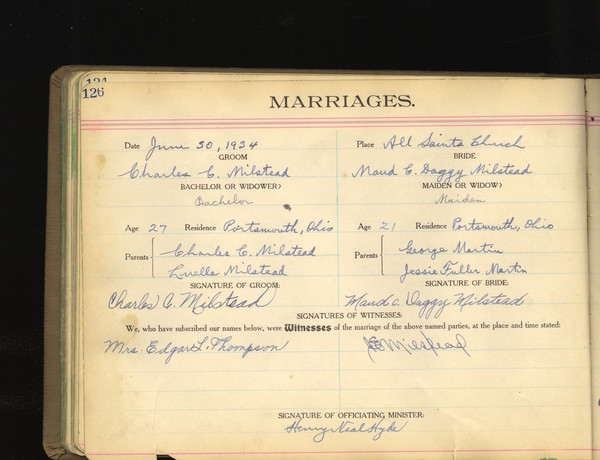 124
126
MARRIAGES.
Date June 30, 1934 Place All Saints Church
GROOM BRIDE
Charles C. Milstead Maud C. Daggy Milstead
BACHELOR OR WIDOWER? MAIDEN OR WIDOW?
Bachelor Maiden
Age 27 Residence Portsmouth, Ohio Age 21 Residence Portsmouth, Ohio
Parents Charles C. Milstead Parents George Martin
Luella Milstead Jessie Fuller Martin
SIGNATURE OF GROOM: SIGNATURE OF BRIDE:
Charles C. Milstead Maud C. Daggy Milstead
SIGNATURES OF WITNESSES:
We, who have subscribed our names below, were Witnesses of the marriage of the above named parties, at the place and time stated:
Mrs. Edgar L. Thompson Milstead
SIGNATURE OF OFFICIATING MINISTER:
Henry Neal Hyde